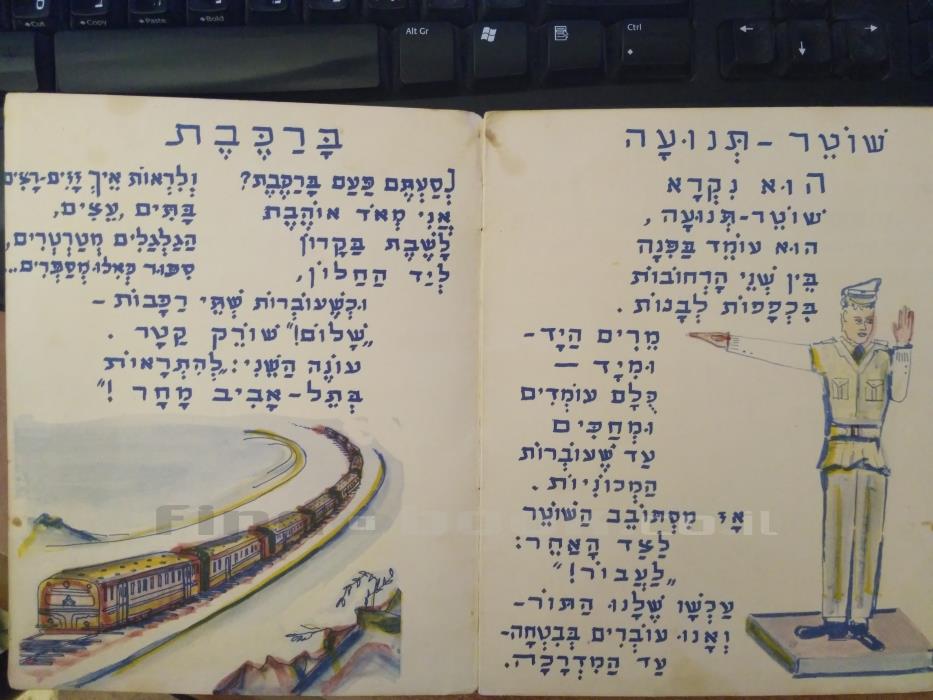 Cut
Copy
Paste
Bold
Alt Gr
Ctrl
שׁוֹטֵר-תְּנוּעָה
הוּא נִקְרָא
שׁוֹטֵר-תְּנוּעָה,
הוּא עוֹמֵד בַּפִּנָּה
בֵּין שְׁנֵי הָרְחוֹבוֹת
בִּכְפָפוֹת לְבָנוֹת.
מֵרִים הַיָּד-
וּמִיָּד —
כֻּלָּם עוֹמְדִים
וּמְחַכִּים
עַד שֶׁעוֹבְרוֹת
הַמְּכוֹנִיּוֹת.
אָז מִסְתּוֹבֵב הַשּׁוֹטֵר
לַצַּד הָאַחֵר:
„לַעֲבוֹר!"
עַכְשָׁו שֶׁלָּנוּ הַתּוֹר-
וְאָנוּ עוֹבְרִים בְּבִטְחָה-
עַד הַמִּדְרָכָה.
בָּרַכֶּבֶת
נְסַעְתֶּם פַּעַם בָּרַכֶּבֶת?
אֲנִי מְאֹד אוֹהֶבֶת
לָשֶׁבֶת בַּקָּרוֹן
לְיַד הַחַלּוֹן,
וְלִרְאוֹת אֵיךְ זָזִים-רָצִים
בָּתִּים, עֵצִים,
הַגַּלְגַּלִּים מְטַרְטְרִים,
סִפּוּר כְּאִלּוּ מְסַפְּרִים...
וּכְשֶׁעוֹבְרוֹת שְׁתֵּי רַכָּבוֹת -
„שָׁלוֹם!" שׁוֹרֵק קַטָּר.
עוֹנֶה הַשֵּׁנִי: „לְהִתְרָאוֹת
בְּתֵל-אָבִיב מָחָר!"